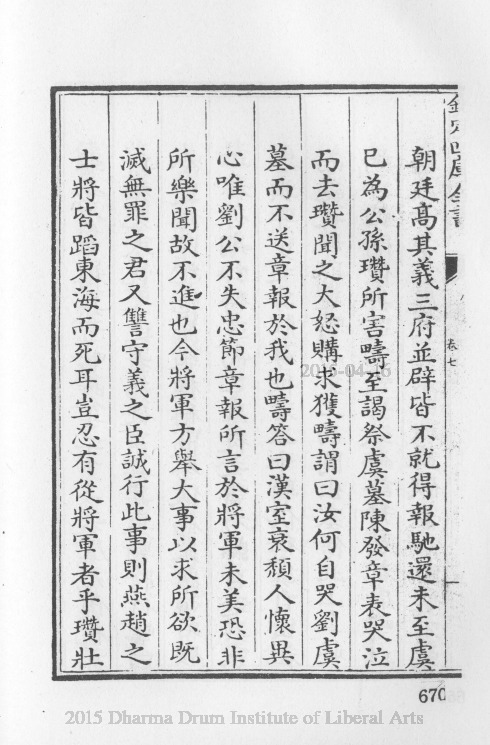 欽定四庫全書
卷七
朝廷髙其義三府並辟皆不就得報馳還未至虞
已為公孫瓚所害疇至謁祭虞墓陳發章表哭泣
而去瓚聞之大怒購求獲疇謂曰汝何自哭劉虞
墓而不送章報於我也疇答曰漢室衰頽人懷異
心唯劉公不失忠節章報所言於將軍未美恐非
所樂聞故不進也今將軍方舉大事以求所欲既
滅無罪之君又讐守義之臣誠行此事則燕趙之
士將皆蹈東海而死耳豈忍有從將軍者乎瓚壯
670
2015 Dharma Drum Institute of Liberal Arts